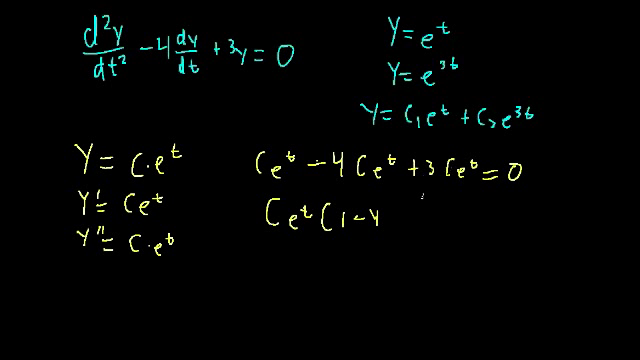 d²y/dt² - 4 dy/dt + 3y = 0
y = e^t
y = e^3t
y = C₁e^t + C₂e^3t
y = C·e^t
y' = Ce^t
y'' = C·e^t
Ce^t - 4Ce^t + 3Ce^t = 0
Ce^t(1-4